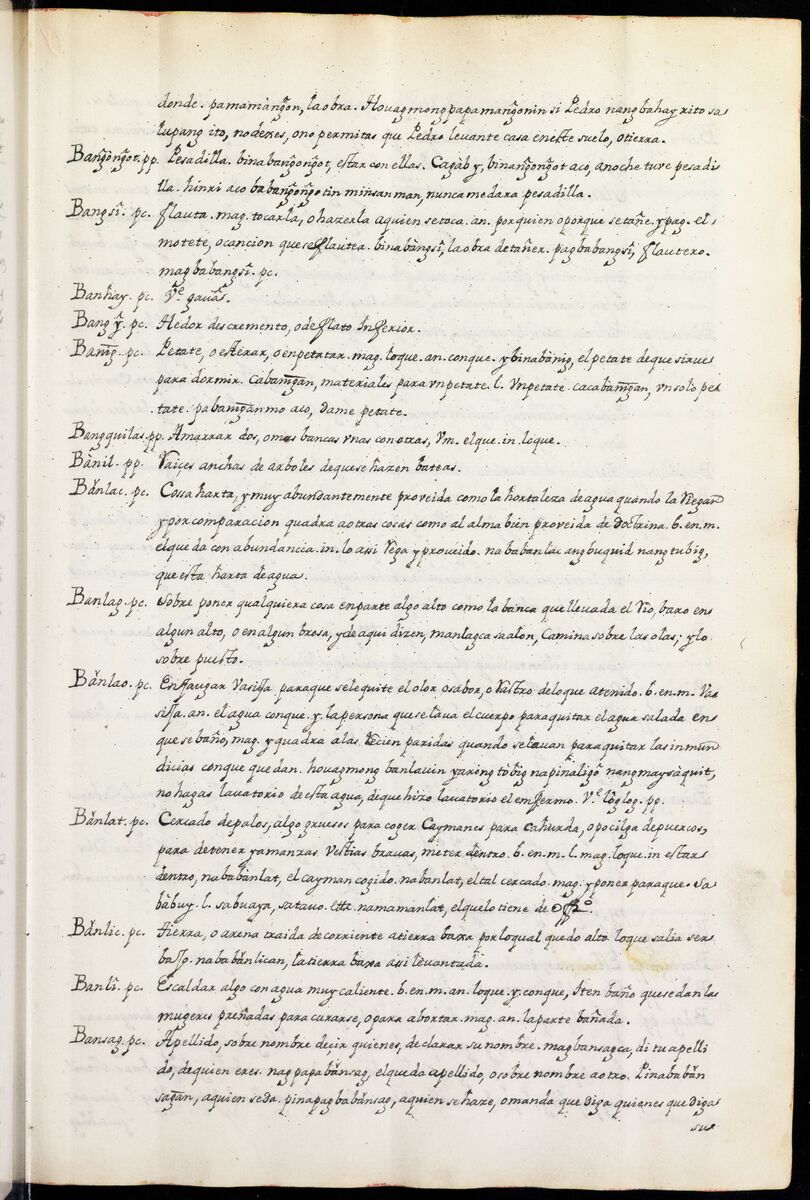 donde. pamamàngõn, la obra. Houag mong papamangõnin si Pedro nang bahay rito sa
lupang ito, no dexes, o no permitas que Pedro levante casa en este suelo, o tierra.
Bangõngõt. pp. Pesadilla. binabangõngõt, estar con ellas. Cagàb y, binangõngõt aco, anoche tuve pesadi
lla. hinri aco babangõngõtin minsan man, nunca me dara pesadilla.
Bangsĩ. pc. flauta. mag. tocarla, o hazerla a quien se toca. an. por quien o porque se tañe. y pag. el
motete, o cancion que se flautea. binabàngsĩ, la obra de tañer. pagbabangsĩ, flautero.
magbabangsĩ. pc.
Banhay. pc. Vᵉ. gavàs.
Bang ỹ. pc. Hedor des cremento, o de flato Inferior.
Banig. pc. Petate, o esterar, o enpetatar. mag. lo que. an. conque. y binabànig, el petate de que sirve
para dormir. cabanigan, materiales para vn petate. l. Vn petate. cacabanigan, vn solo pe
tate. pabanigan mo aco, dame petate.
Bangquilas. pp. Amarrar dos, o mas bancas vnas con otras, Vm. el que. in. lo que.
Bànil. pp. Raiçes anchas de arboles de que se hazen bateas.
Bànlac. pc. Cosa harta, y muy abundantemente proveida como la hortaleza de agua quando la Riegan
y por comparacion quadra a otras cosas como al alma bien proveida de doctrina. b. en. m.
el que da con abundancia. in. lo assi Rega y proveido. nababanlac ang buquid nang tubig,
que esta harta de agua.
Banlag. pc. Sobre poner qualquiera cosa en parte algo alto como la banca que llevada el Rio, baxo en
algun alto, o en algun brosa, y de aqui dizen, manlagca sa alon, Camina sobre las olas; y lo
sobre puesto.
Bànlao. pc. Enssaugar Vasissa. para que se le quite el olor o sabor, o Rastro de lo que a tenido. b. en. m. Vas
issa. an. el agua conque. y. la persona que se lava el cuerpo para quitar el agua salada en
que se baño, mag. y quadra a las recien paridas quando se lavan para quitar las inmun
dicias con que quedan. houag mong banlauin yaring tòbig na pinaligõ nang maysàquit,
no hagas lavatorio de esta agua, de que hizo lavatorio el enfermo. Vᵉ lòglog. pp.
Bànlat. pc. Cercado de palos, algo gruesos para coger Caymanes para cahurda, o pocilga de puercos,
para detener y amanzar Vestias bravas, meter dentro. b. en. m. l. mag. lo que. in estar
dentro, nababànlat, el cayman cogido. nabanlat, el tal cercado. mag. y poner para que. sa
bàbuy. l. sa buaya, sa tavo. ettᵃ. namamanlat, el que lo tiene de offᵒ.
Bànlic. pc. tierra, o arena traida de corriente a tierra baxa por lo qual quedo alto lo que salia ser
baxo. nababànlican, la tierra baxa assi levantada.
Banlĩ. pc. Escaldar algo con agua muy caliente. b. en. m. an. lo que. y. conque, Iten baño, que se dan las
mugeres preñadas para curarse, o para abortar. mag. an. la parte bañada.
Bansag. pc. Apellido, sobre nombre deçir quien es, declarar su nombre. magbansagca, di tu apelli
do, de quien eres. nagpapabànsag, el que da apellido, o sobre nombre a otro. Pinababàn
sagàn, a quien se da. pinapagbabànsag, a quien se haze, o manda que diga quien es que diga
su